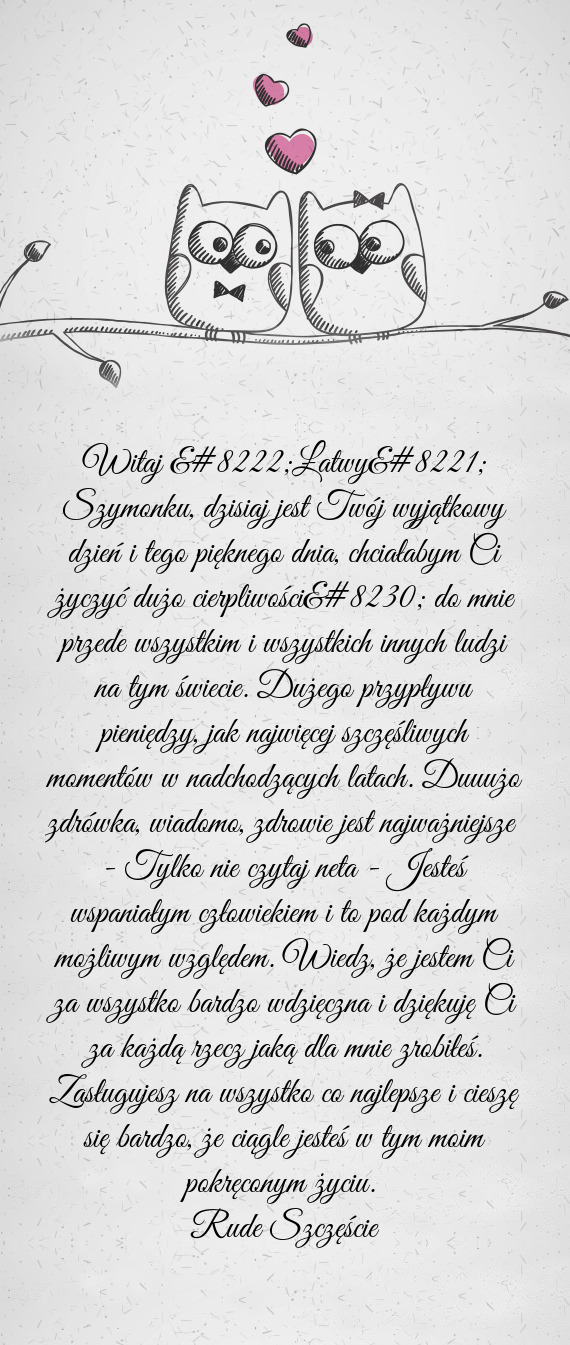 Witaj &#8222;Łatwy&#8221;
Szymonku, dzisiaj jest Twój wyjątkowy
dzień i tego pięknego dnia, chciałabym Ci
życzyć dużo cierpliwości&#8230; do mnie
przede wszystkim i wszystkich innych ludzi
na tym świecie. Dużego przypływu
pieniędzy, jak najwięcej szczęśliwych
momentów w nadchodzących latach. Duuużo
zdrówka, wiadomo, zdrowie jest najważniejsze
- Tylko nie czytaj neta - Jesteś
wspaniałym człowiekiem i to pod każdym
możliwym względem. Wiedz, że jestem Ci
za wszystko bardzo wdzięczna i dziękuję Ci
za każdą rzecz jaką dla mnie zrobiłeś.
Zasługujesz na wszystko co najlepsze i cieszę
się bardzo, że ciągle jesteś w tym moim
pokręconym życiu.
Rude Szczęście